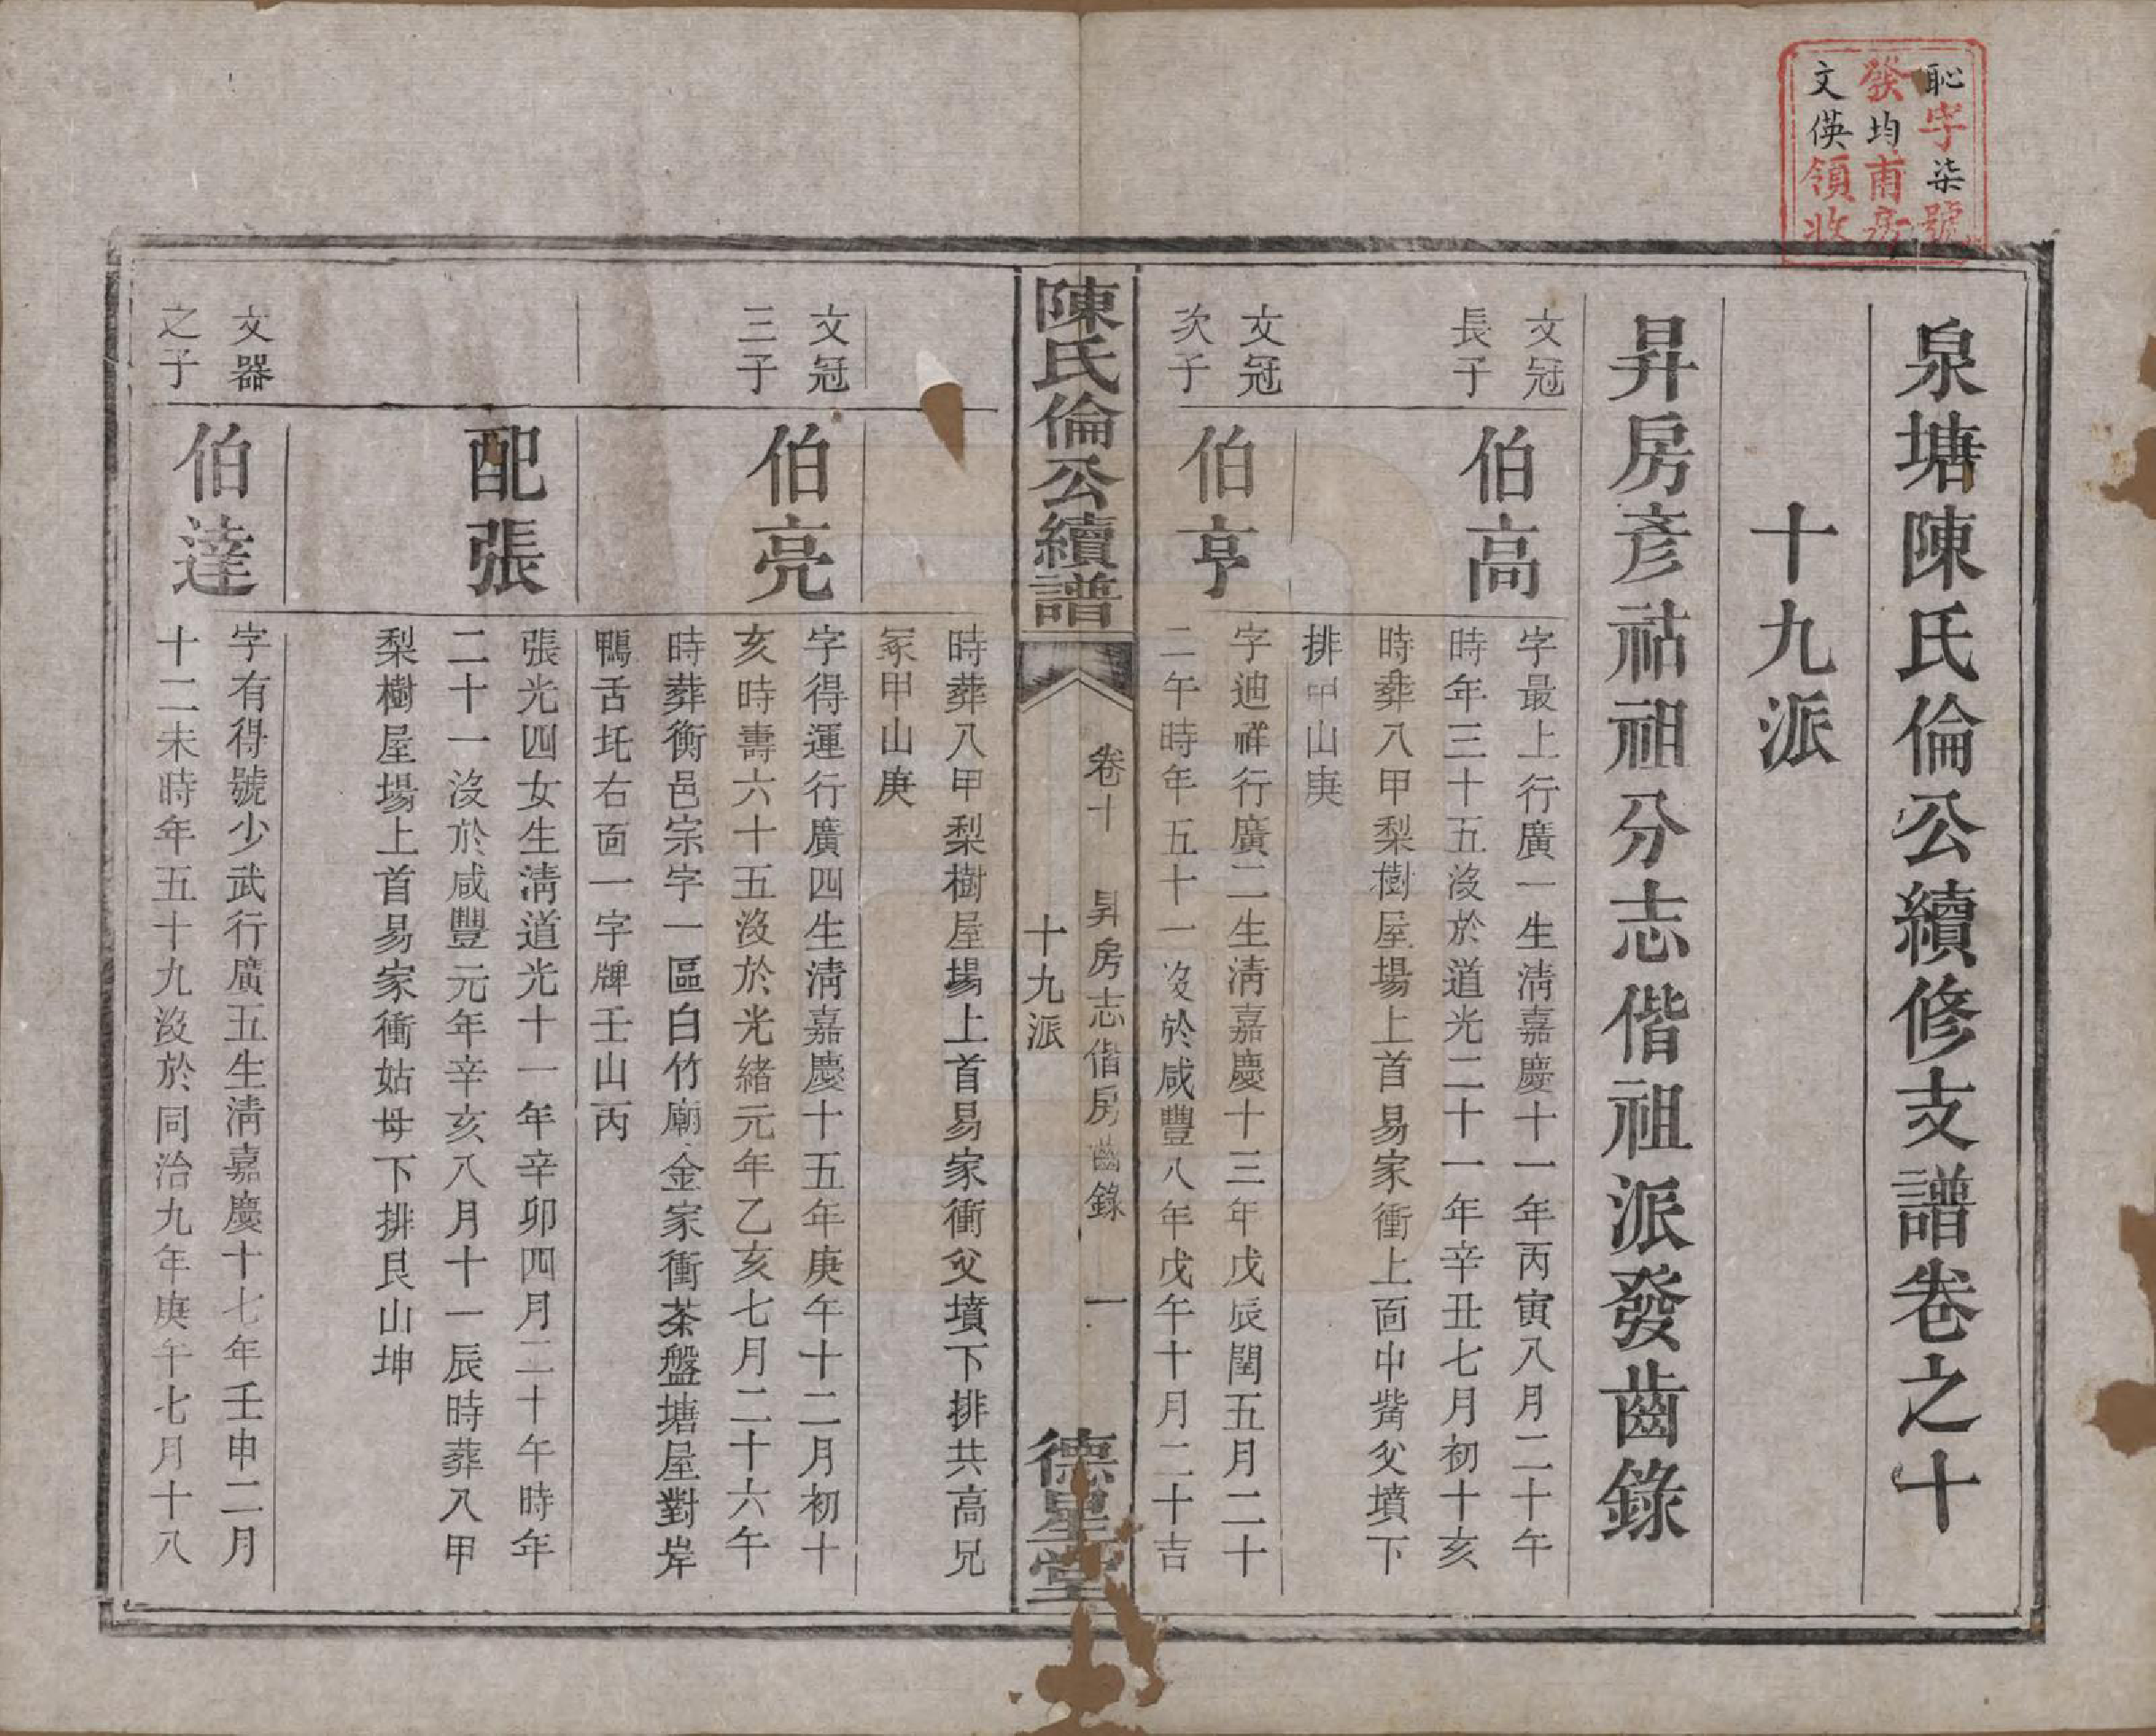 恥字柒號
發均甫房
文偀領收
泉塘陳氏倫公續修支譜卷之十
十九派
昇房彥祜祖分志偕祖派發齒錄
文冠
長子
伯高
字最上行廣一生淸嘉慶十一年丙寅八月二十午
時年三十五沒於道光二十一年辛丑七月初十亥
時葬八甲梨樹屋場上首易家衝上面中嘴父墳下
排甲山庚
文冠
次子
伯亨
字迪祥行廣二生淸嘉慶十三年戊辰閏五月二十
二午時年五十一沒於咸豐八年戊午十月二十吉
陳氏倫公續譜
卷十 昇房志偕房齒錄 一
十九派
德星堂
時葬八甲梨樹屋場上首易家衝父墳下排共高兄
冢甲山庚
文冠
三子
伯亮
字得運行廣四生淸嘉慶十五年庚午十二月初十
亥時壽六十五沒於光緒元年乙亥七月二十六午
時葬衡邑宗字一區白竹廟金家衝茶盤塘屋對岸
鴨舌圫右面一字牌壬山丙
配張
張光四女生淸道光十一年辛卯四月二十午時年
二十一沒於咸豐元年辛亥八月十一辰時葬八甲
梨樹屋場上首易家衝姑母下排艮山坤
文器
之子
伯達
字有得號少武行廣五生淸嘉慶十七年壬申二月
十二未時年五十九沒於同治九年庚午七月十八